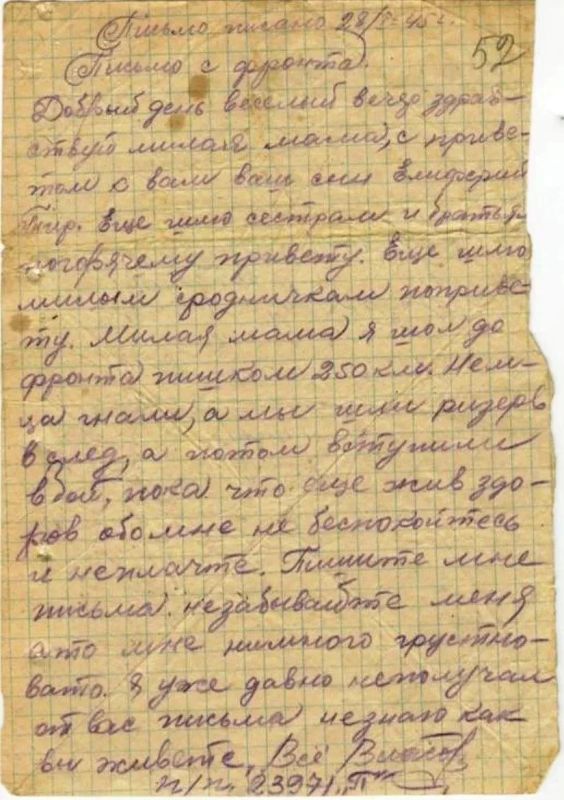 Письмо писано 28/I-45 г.
52
Письмо с фронта.
Добрый день веселый вечер здрав-
ствуй милая мама, с приве-
том к вам ваш сын
Еще шлю сестрам и братьям
погорячему привету. Еще шлю
милым сродничкам поприве-
ту. Милая мама я шол до
фронта пишком 250 км. Нем-
ца гнали, а мы шли ризерв
в след, а потом вступили
в бой, пока что еще жив здо-
ров обо мне не беспокойтесь
и неплачте. Пишите мне
письма. незабывайте меня
ато мне нимного грустно-
вато. Я уже давно неполучал
от вас письма незнаю как
вы живете, Всё Власов,
п/п. 23971 "П"